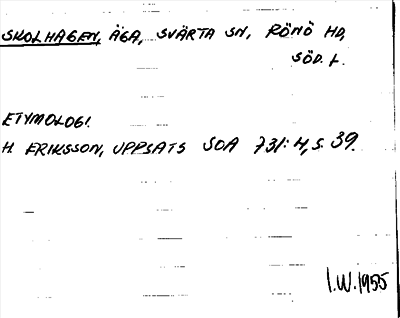 SKOLHAGEN, ÄGA, SVÄRTA SN, RÖNÖ HD,
SÖD. L.
ETYMOLOGI.
H. ERIKSSON, UPPSATS SOA 731:4, S. 39.
I.W. 1955